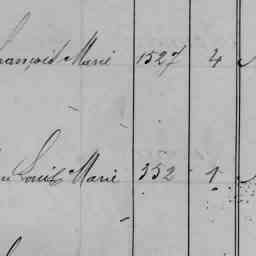 François Marie 1527 4
Louis Marie 352 1